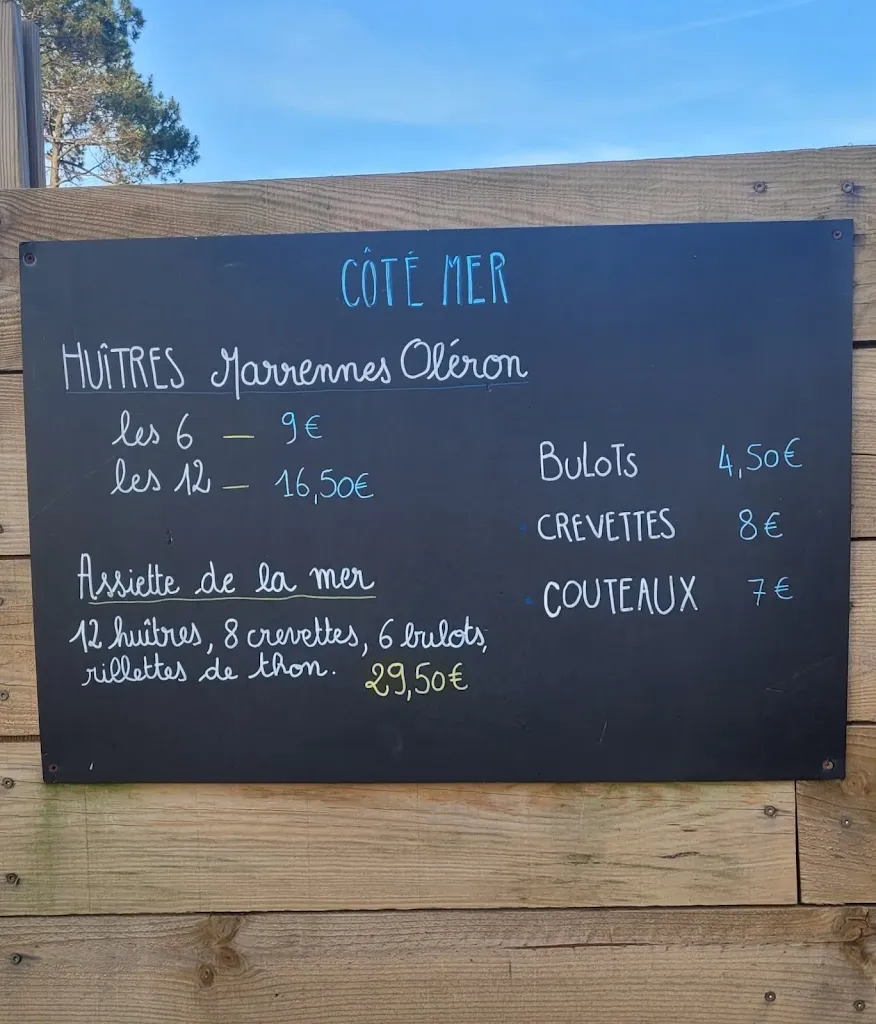 CÔTÉ MER
HUÎTRES Marrennes Oléron
les 6 — 9€
les 12 — 16,50€
Assiette de la mer
12 huîtres, 8 crevettes, 6 bulots,
rillettes de thon. 29,50€
BULOTS 4,50€
CREVETTES 8€
COUTEAUX 7€